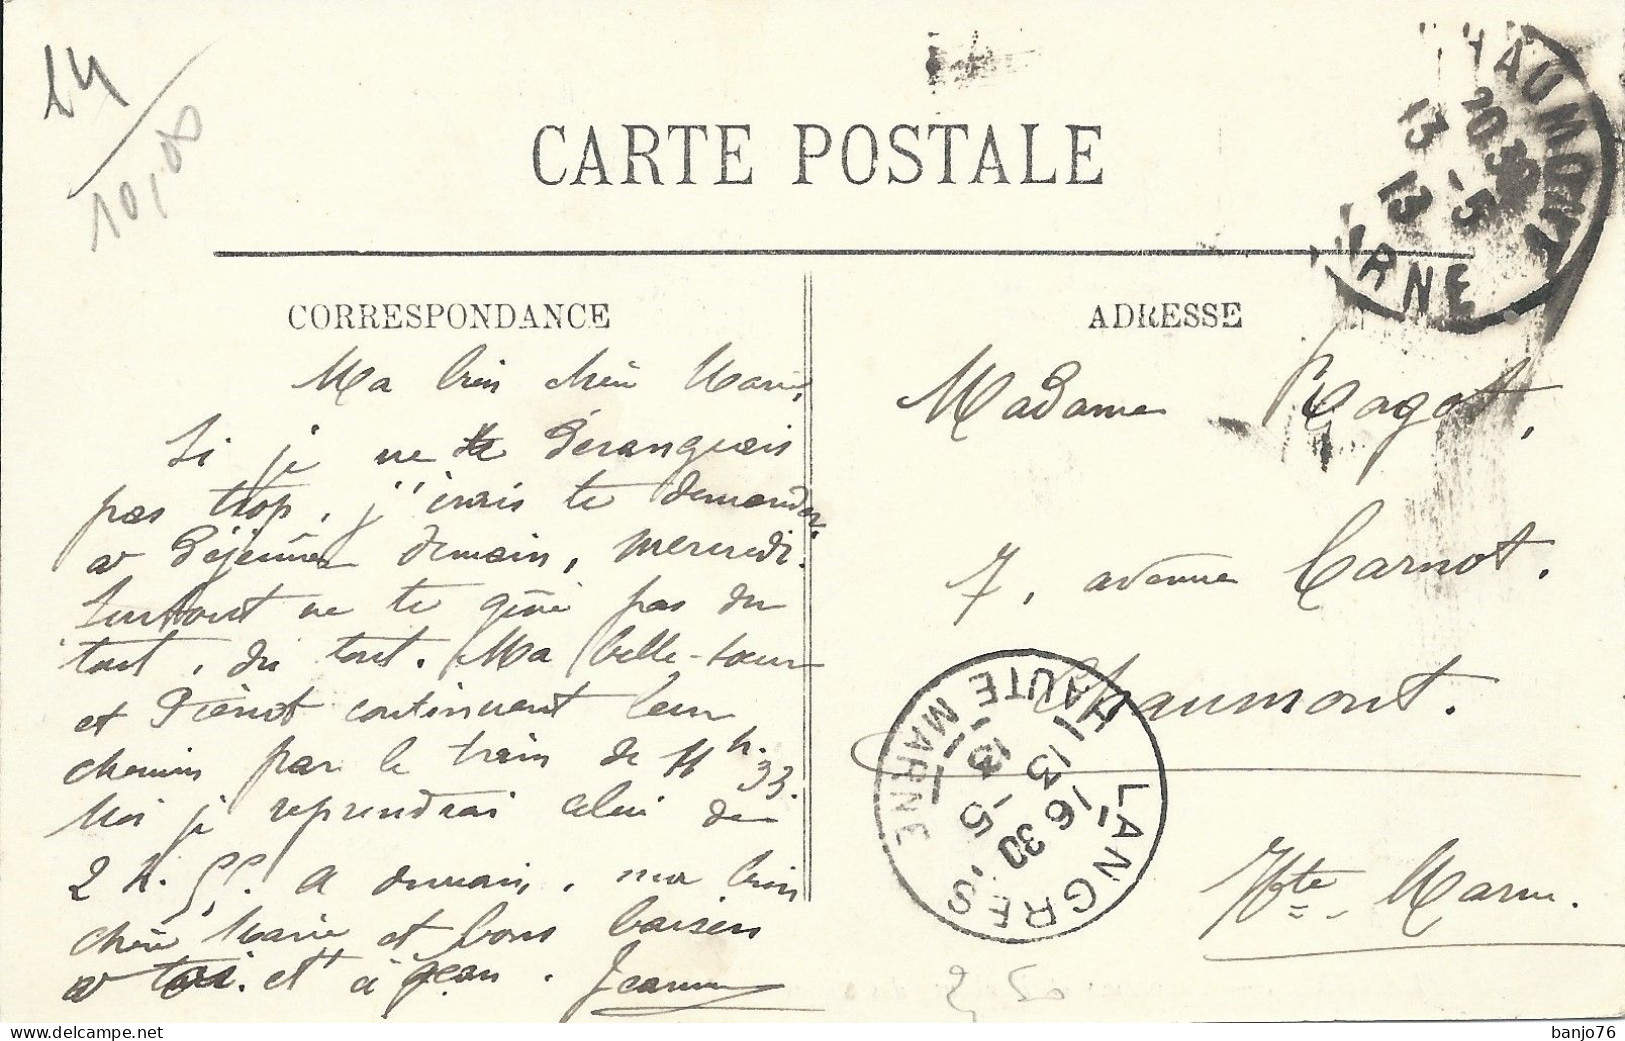 14
10,00
CARTE POSTALE
CHAUMONT
20 30
13 -5
13
MARNE
CORRESPONDANCE
ADRESSE
Ma bien chère Marie,
Si je ne te dérangeais
pas trop, j'irais te demander
à déjeûner demain, mercredi.
Surtout ne te gêne pas du
tout, du tout. Ma belle-sœur
et Pierrot continuent leur
chemin par le train de 11 h. 33.
Moi je reprendrai celui de
2 h. 55. A demain, ma bien
chère Marie et bons baisers
à toi et à Jean. Jeanne
Madame Ragot,
7, avenue Carnot.
Chaumont.
Hte Marne.
LANGRES
HAUTE MARNE
13
16 30
-5
13
banjo76